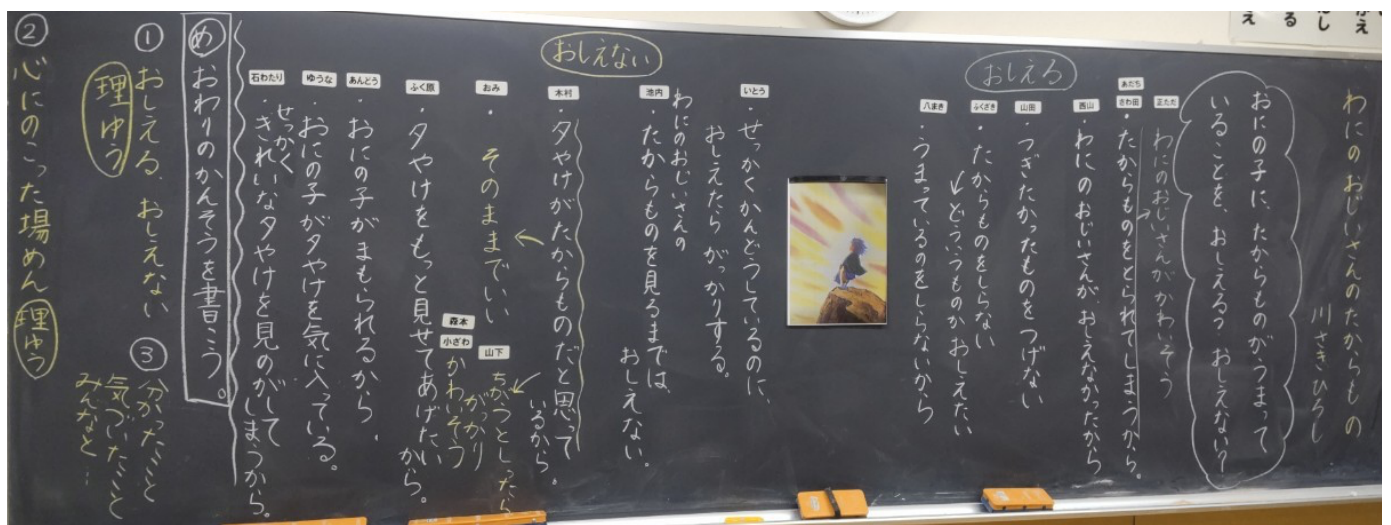 わにのおじいさんのたからもの
川さきひろし
おにの子に、たからものがうまって
いることを、おしえる？おしえない？
おしえる
正ただ
わにのおじいさんがかわいそう
あだち
さわ田
・たからものをとられてしまうから。
西山
・わにのおじいさんが、おしえなかったから
山田
・つぎたかったものをつげない
ふくざき
・たからものをしらない
どういうものかおしえたい
八まき
・うまっているのをしらないから
おしえない
いとう
・せっかくかんどうしているのに、
おしえたらがっかりする。
池内
わにのおじいさんの
・たからものを見るまでは、
おしえない。
木村
・夕やけがたからものだと思って
いるから。
おみ
・そのままでいい
山下
ちがうとしったら
がっかり
森本
小ざわ
かわいそう
ふく原
・夕やけをもっと見せてあげたい
から。
あんどう
・おにの子がまもられるから、
ゆうな
・おにの子が夕やけを気に入っている。
石わたり
せっかく
・きれいな夕やけを見のがして
しまうから。
め おわりのかんそうを書こう。
① おしえる、おしえない
理ゆう
② 心にのこった場めん 理ゆう
③ 分かったこと
気づいたこと
みんなと…